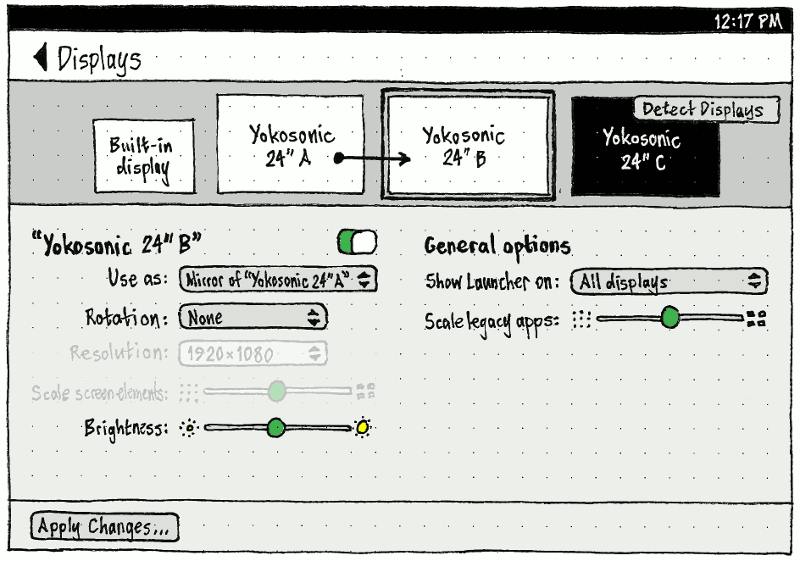 12:17 PM
Displays
Detect Displays
Built-in
display
Yokosonic
24" A
Yokosonic
24" B
Yokosonic
24" C
"Yokosonic 24" B"
Use as: Mirror of "Yokosonic 24" A"
Rotation: None
Resolution: 1920×1080
Scale screen elements:
Brightness:
General options
Show Launcher on: All displays
Scale legacy apps:
Apply Changes...